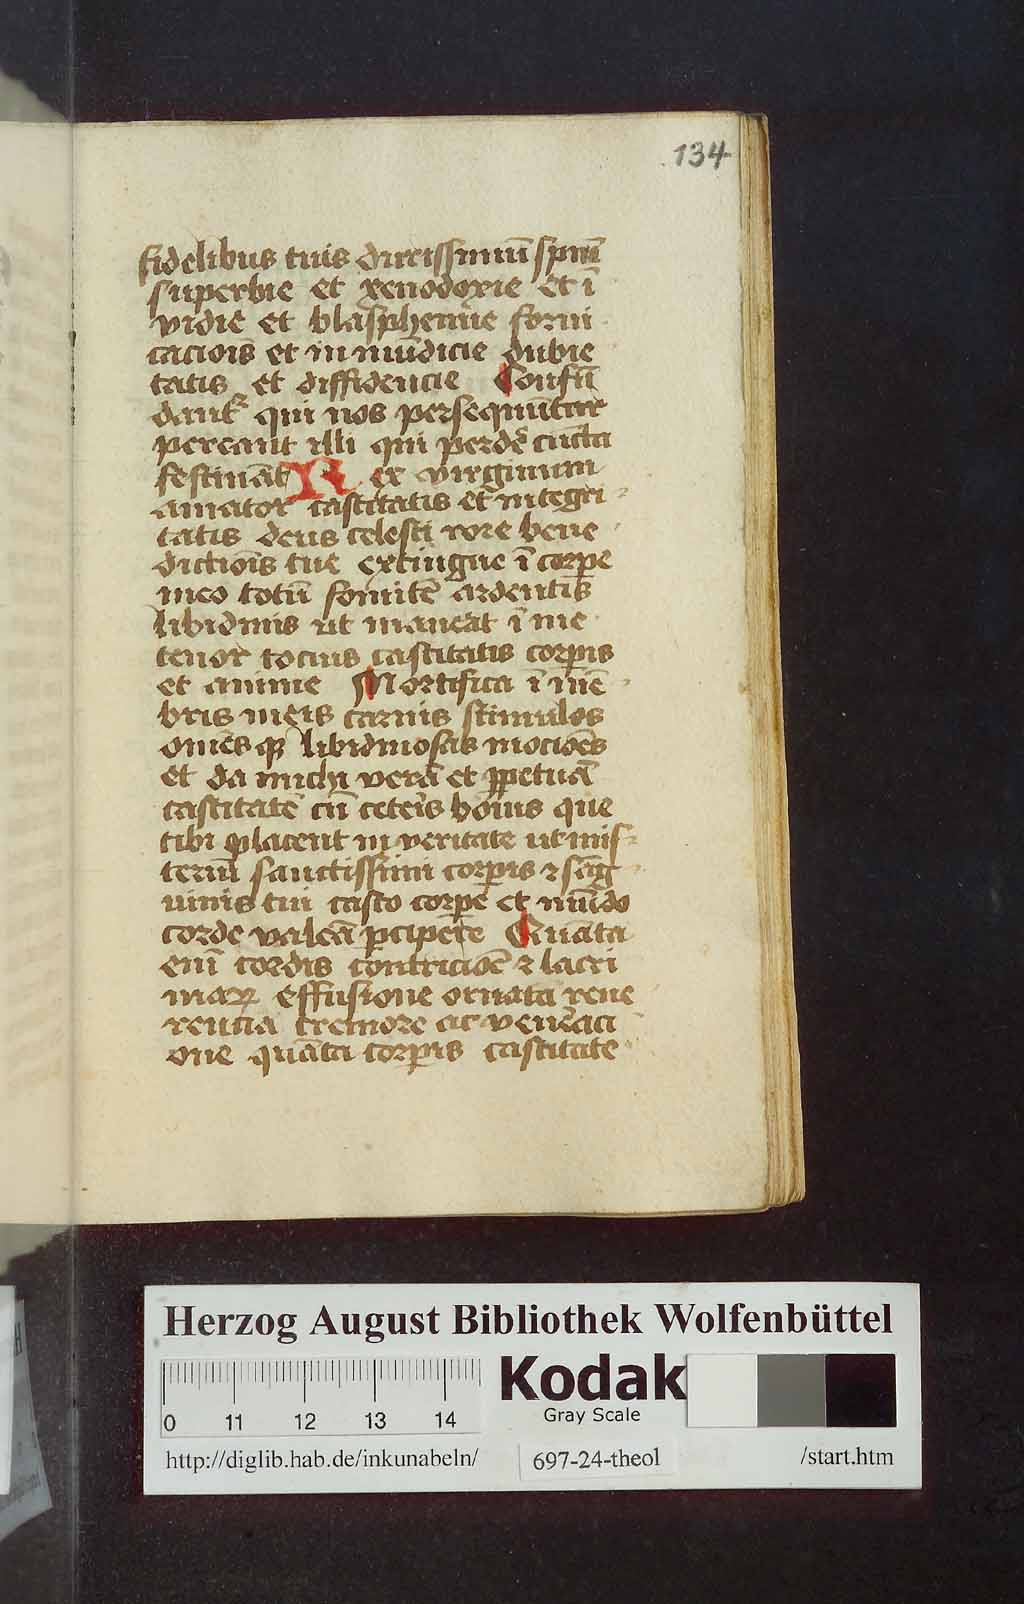 134
fidelibus tuis durissimū spm̄
superbie et xenodoxie et ī
vidie et blasphemie forni
cacioīs et in mūdicie dubie
tatis et diffidencie Confū
dant᷑ qui nos persequūtur
pereant illi qui perdē cūcta
festināt Rex virginum
amator castitatis et integri
tatis deus celesti rore bene
dictioīs tue extingue ī corpe
meo totū fomitē ardentis
libidinis ut maneat ī me
tenor tocius castitatis corpis
et anime Mortifica ī mē
bris meis carnis stimulos
omēs qꝫ libidinosas mocioēs
et da michi verā et ꝑpetuā
castitatē cū ceteris boīis que
tibi placent in veritate ut mis
teriū sanctissimi corpis ⁊ sāg
uinis tui casto corpe et mūdo
corde valeā ꝑcipere Quāta
enī cordis contricioē ⁊ lacri
maꝝ effusione ornata reue
rencia tremore ac veneraci
one quāta corpis castitate
Herzog August Bibliothek Wolfenbüttel
Kodak
Gray Scale
0 11 12 13 14
http://diglib.hab.de/inkunabeln/ 697-24-theol /start.htm